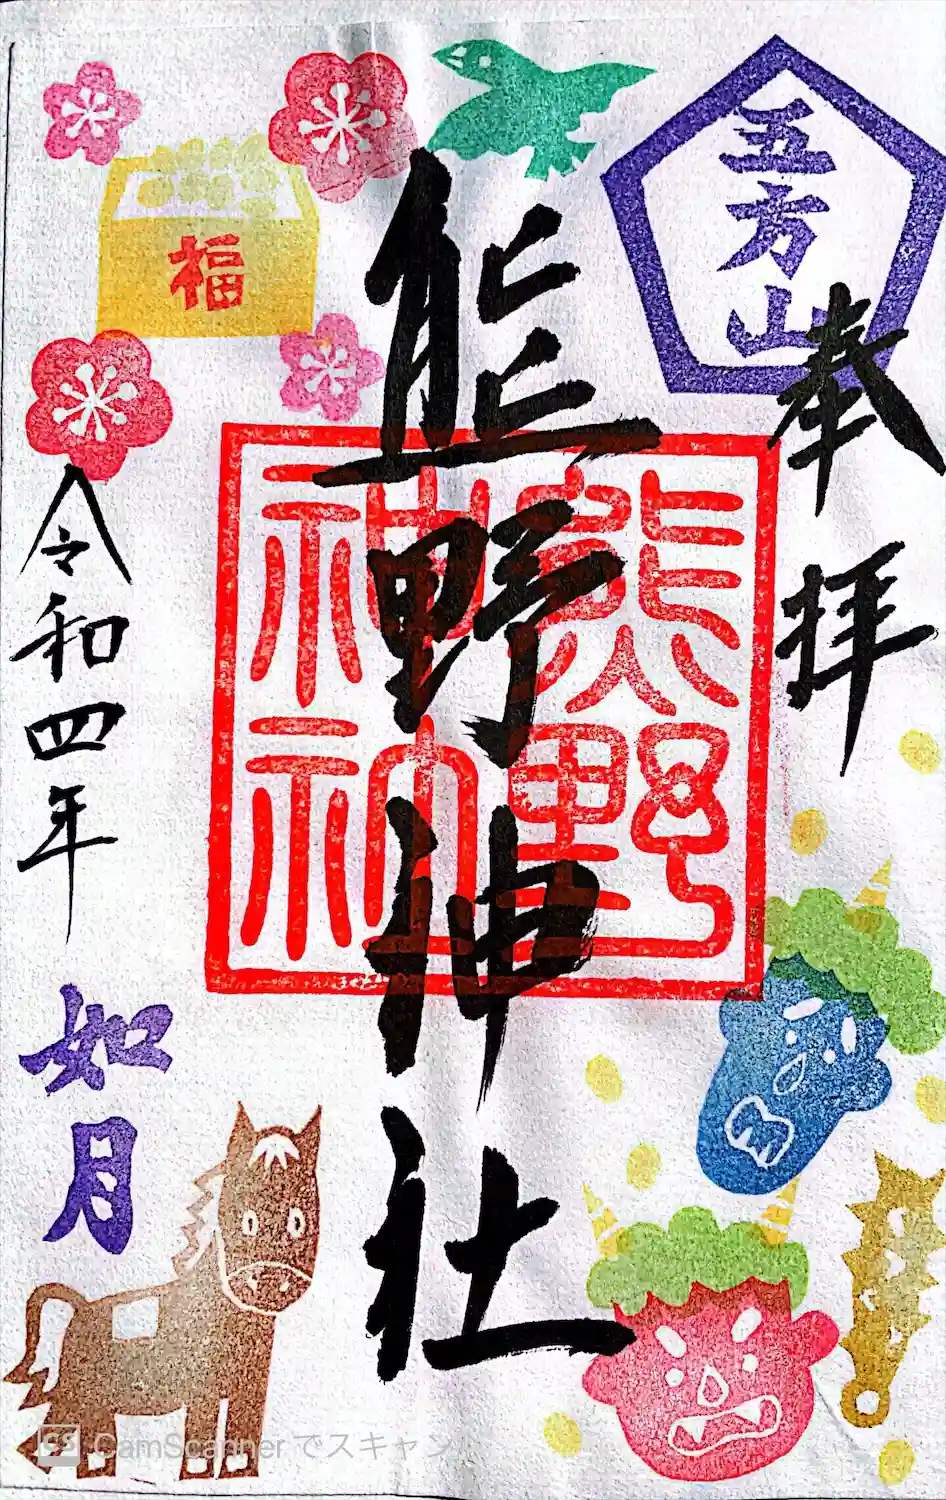 五方山
奉拝
熊野神社
熊野
神社
福
令和四年
如月
CS CamScanner でスキャン